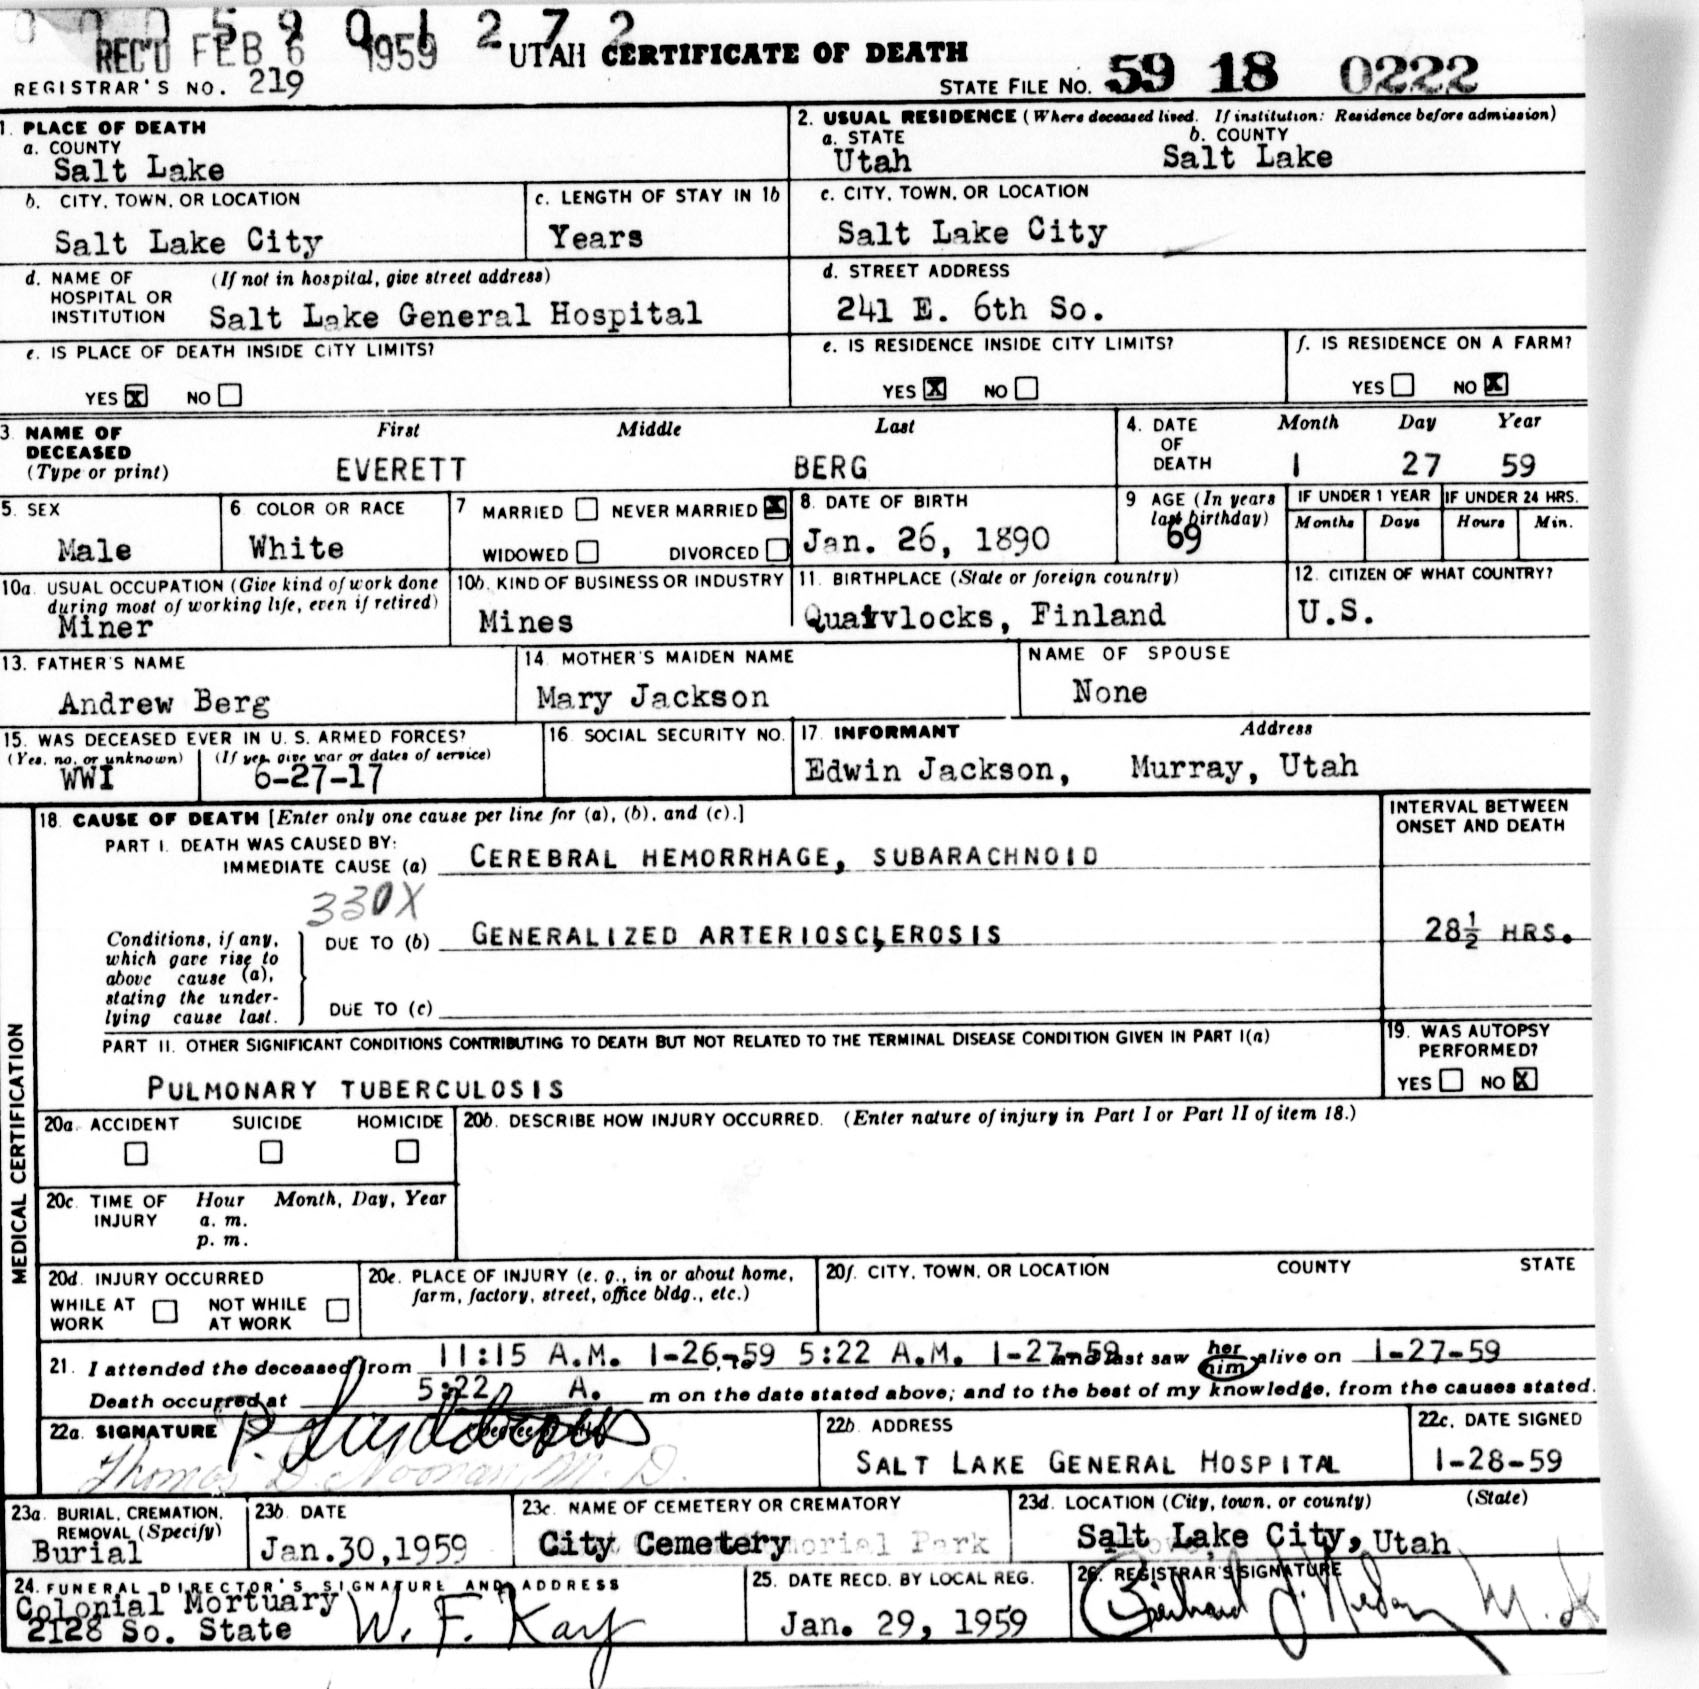 0 0 0 5 9 0 1 2 7 2
REC'D FEB 6 1959 UTAH CERTIFICATE OF DEATH
REGISTRAR'S NO. 219 STATE FILE NO. 59 18 0222
1. PLACE OF DEATH
a. COUNTY
Salt Lake
2. USUAL RESIDENCE (Where deceased lived. If institution: Residence before admission)
a. STATE b. COUNTY
Utah Salt Lake
b. CITY, TOWN, OR LOCATION
Salt Lake City
c. LENGTH OF STAY IN 1b
Years
c. CITY, TOWN, OR LOCATION
Salt Lake City
d. NAME OF (If not in hospital, give street address)
HOSPITAL OR
INSTITUTION Salt Lake General Hospital
d. STREET ADDRESS
241 E. 6th So.
e. IS PLACE OF DEATH INSIDE CITY LIMITS?
YES X NO
e. IS RESIDENCE INSIDE CITY LIMITS?
YES X NO
f. IS RESIDENCE ON A FARM?
YES NO X
3 NAME OF First Middle Last
DECEASED
(Type or print) EVERETT BERG
4. DATE Month Day Year
OF
DEATH 1 27 59
5. SEX
Male
6 COLOR OR RACE
White
7 MARRIED NEVER MARRIED X
WIDOWED DIVORCED
8. DATE OF BIRTH
Jan. 26, 1890
9 AGE (In years
last birthday)
69
IF UNDER 1 YEAR IF UNDER 24 HRS.
Months Days Hours Min.
10a. USUAL OCCUPATION (Give kind of work done
during most of working life, even if retired)
Miner
10b. KIND OF BUSINESS OR INDUSTRY
Mines
11. BIRTHPLACE (State or foreign country)
Finland
12. CITIZEN OF WHAT COUNTRY?
U.S.
13. FATHER'S NAME
Andrew Berg
14 MOTHER'S MAIDEN NAME
Mary Jackson
NAME OF SPOUSE
None
15. WAS DECEASED EVER IN U. S. ARMED FORCES?
(Yes, no, or unknown) (If yes, give war or dates of service)
WWI 6-27-17
16. SOCIAL SECURITY NO.
17. INFORMANT Address
Edwin Jackson, Murray, Utah
MEDICAL CERTIFICATION
18. CAUSE OF DEATH [Enter only one cause per line for (a), (b), and (c).]
INTERVAL BETWEEN
ONSET AND DEATH
PART I. DEATH WAS CAUSED BY:
IMMEDIATE CAUSE (a) CEREBRAL HEMORRHAGE, SUBARACHNOID
330X
Conditions, if any,
which gave rise to
above cause (a),
stating the under-
lying cause last.
DUE TO (b) GENERALIZED ARTERIOSCLEROSIS 28½ HRS.
DUE TO (c)
PART II. OTHER SIGNIFICANT CONDITIONS CONTRIBUTING TO DEATH BUT NOT RELATED TO THE TERMINAL DISEASE CONDITION GIVEN IN PART I(a)
PULMONARY TUBERCULOSIS
19. WAS AUTOPSY
PERFORMED?
YES NO X
20a. ACCIDENT SUICIDE HOMICIDE
20b. DESCRIBE HOW INJURY OCCURRED. (Enter nature of injury in Part I or Part II of item 18.)
20c. TIME OF Hour Month, Day, Year
INJURY a. m.
p. m.
20d. INJURY OCCURRED
WHILE AT NOT WHILE
WORK AT WORK
20e. PLACE OF INJURY (e. g., in or about home,
farm, factory, street, office bldg., etc.)
20f. CITY, TOWN, OR LOCATION COUNTY STATE
21. I attended the deceased from 11:15 A.M. 1-26-59 5:22 A.M. 1-27-59 and last saw her him alive on 1-27-59
Death occurred at 5:22 A. m on the date stated above; and to the best of my knowledge, from the causes stated.
22a. SIGNATURE P.
Thomas D. Noonan, M. D.
22b. ADDRESS
SALT LAKE GENERAL HOSPITAL
22c. DATE SIGNED
1-28-59
23a. BURIAL, CREMATION,
REMOVAL (Specify)
Burial
23b. DATE
Jan.30,1959
23c. NAME OF CEMETERY OR CREMATORY
City Cemetery Park
23d. LOCATION (City, town, or county) (State)
Salt Lake City, Utah
24. FUNERAL DIRECTOR'S SIGNATURE AND ADDRESS
Colonial Mortuary
2128 So. State W. F. Kay
25. DATE RECD. BY LOCAL REG.
Jan. 29, 1959
26. REGISTRAR'S SIGNATURE
M. D.